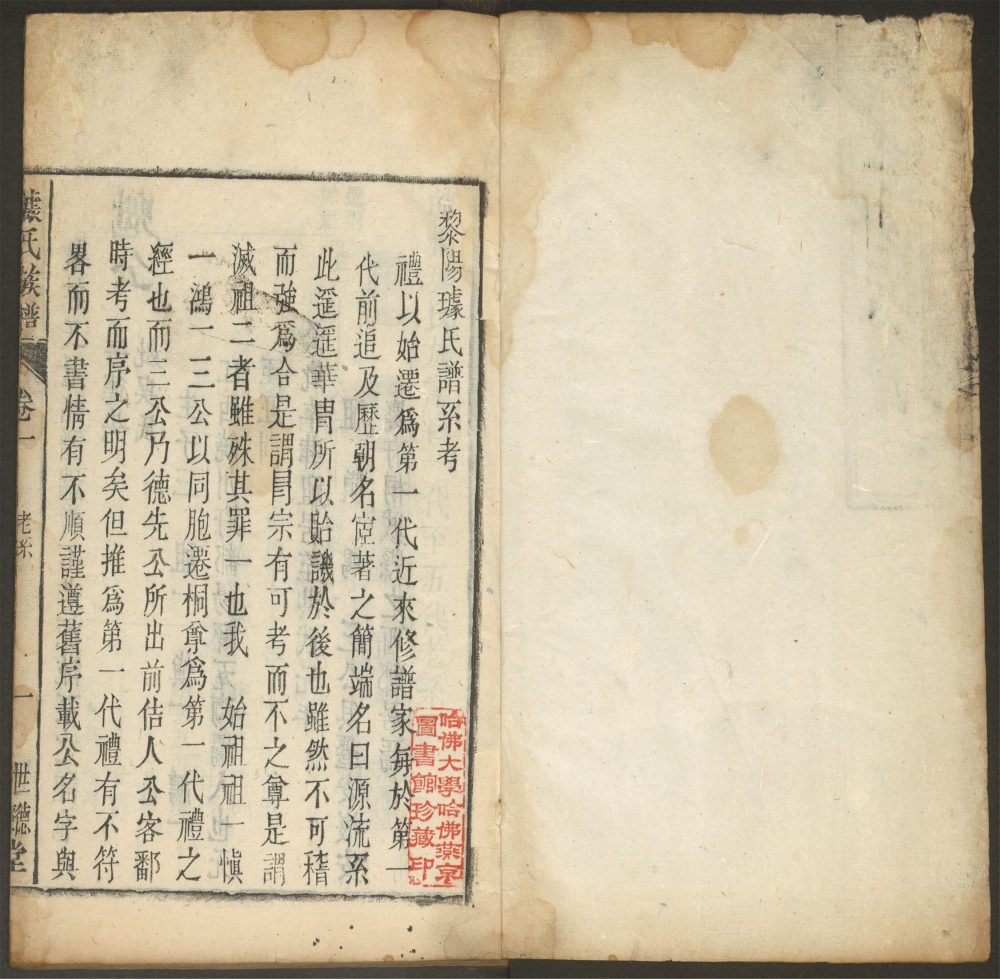 黎陽璩氏譜系考
禮以始遷爲第一代近來修譜家每於第一
代前追及歷朝名宦著之簡端名曰源流系
此遥遥華胄所以貽譏於後也雖然不可稽
而強爲合是謂冐宗有可考而不之尊是謂
滅祖二者雖殊其罪一也我 始祖祖一愼
一鴻一三公以同胞遷桐尊爲第一代禮之
經也而三公乃德先公所出前佶人公客鄱
時考而序之明矣但推爲第一代禮有不符
畧而不書情有不順謹遵舊序載公名字與
璩氏族譜 卷一 考系 一 世聽堂
哈佛大學哈佛燕京
圖書館珍藏印